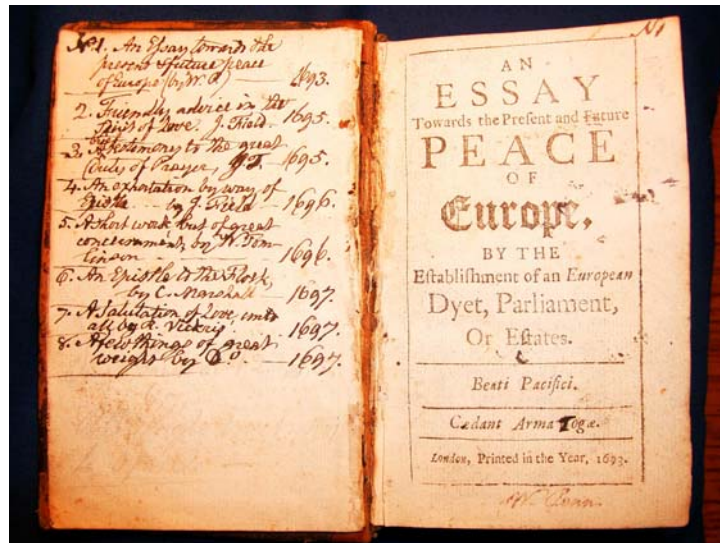 No 1. An Essay towards the
present & future peace
of Europe (by W.P) — 1693.
2. Friendly advice in the
Spirit of Love J. Field - 1695.
3. A testimony to the great
Duty of Prayer, 1695.
4. An exhortation by way of
Epistle — by J. Field - 1696.
5. A short work but of great
concernment, by W. Tom-
linson - - 1696.
6. An Epistle to the Flock,
by C. Marshall - 1697.
7. A Salutation of Love unto
all by R. Vickris - 1697.
8. A few things of great
weight by Do. — 1697.
No 1
AN
ESSAY
Towards the Present and Future
PEACE
OF
Europe,
BY THE
Eſtabliſhment of an European
Dyet, Parliament,
Or Eſtates.
Beati Pacifici.
Cædant Arma Togæ.
London, Printed in the Year, 1693.
W. Penn